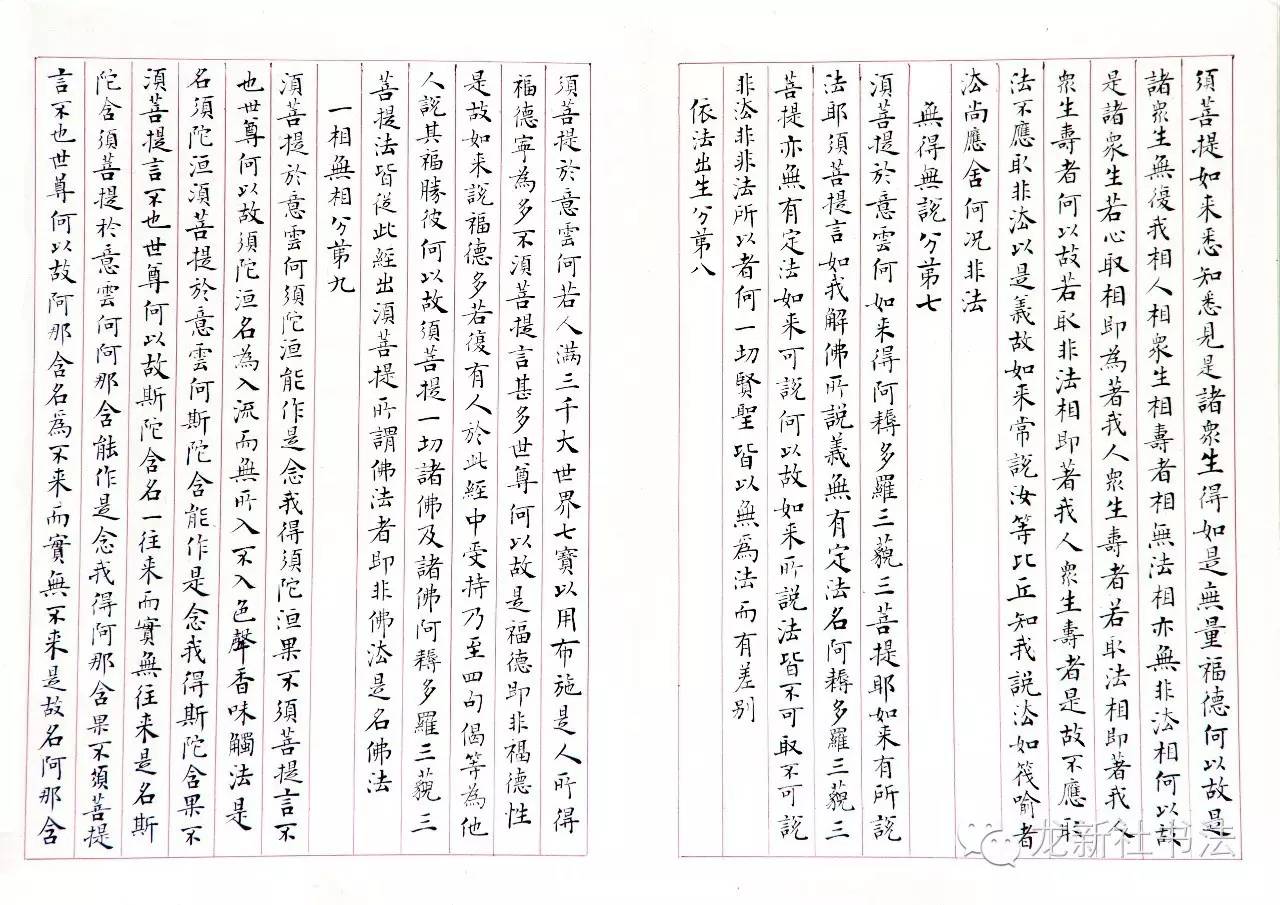 須菩提如来悉知悉見是諸衆生得如是無量福德何以故是
諸衆生無復我相人相衆生相壽者相無法相亦無非法相何以故
是諸衆生若心取相即為著我人衆生壽者若取法相即著我人
衆生壽者何以故若取非法相即著我人衆生壽者是故不應取
法不應取非法以是義故如来常説汝等比丘知我説法如筏喻者
法尚應舍何况非法
無得無説分第七
須菩提於意雲何如来得阿耨多羅三藐三菩提耶如来有所説
法耶須菩提言如我解佛所説義無有定法名阿耨多羅三藐三
菩提亦無有定法如来可説何以故如来所説法皆不可取不可説
非法非非法所以者何一切賢聖皆以無為法而有差别
依法出生分第八
須菩提於意雲何若人满三千大世界七寶以用布施是人所得
福德寧為多不須菩提言甚多世尊何以故是福德即非福德性
是故如来説福德多若復有人於此經中受持乃至四句偈等為他
人説其福勝彼何以故須菩提一切諸佛及諸佛阿耨多羅三藐三
菩提法皆從此經出須菩提所謂佛法者即非佛法是名佛法
一相無相分第九
須菩提於意雲何須陀洹能作是念我得須陀洹果不須菩提言不
也世尊何以故須陀洹名為入流而無所入不入色聲香味觸法是
名須陀洹須菩提於意雲何斯陀含能作是念我得斯陀含果不
須菩提言不也世尊何以故斯陀含名一往来而實無往来是名斯
陀含須菩提於意雲何阿那含能作是念我得阿那含果不須菩提
言不也世尊何以故阿那含名為不来而實無不来是故名阿那含
龙新社书法